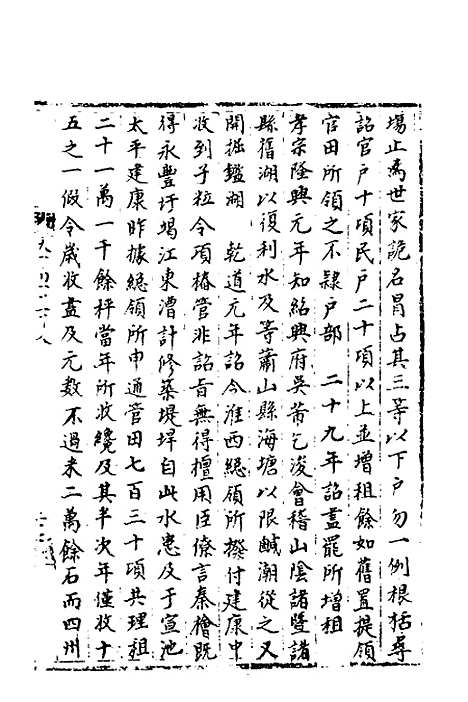 場止為世家詭名冒占其三等以下戶勿一例根括尋
詔官戶十頃民戶二十頃以上並增租餘如舊置提領
官田所領之不隸戶部　二十九年詔盡罷所增租
孝宗隆興元年知紹興府吳芾乞浚會稽山陰諸暨諸
縣舊湖以復利水及等蕭山縣海塘以限鹹潮從之又
開掘鑑湖　乾道元年詔令淮西總領所撥付建康中
收到子粒令項樁管非詔旨無得擅用臣僚言秦檜既
得永豐圩竭江東漕計修築堤埂自此水患及于宣池
太平建康昨據總領所申通管田七百三十頃共理租
二十一萬一千餘秤當年所收纔及其半次年僅收十
五之一假令歲收盡及元數不過米二萬餘石而四州